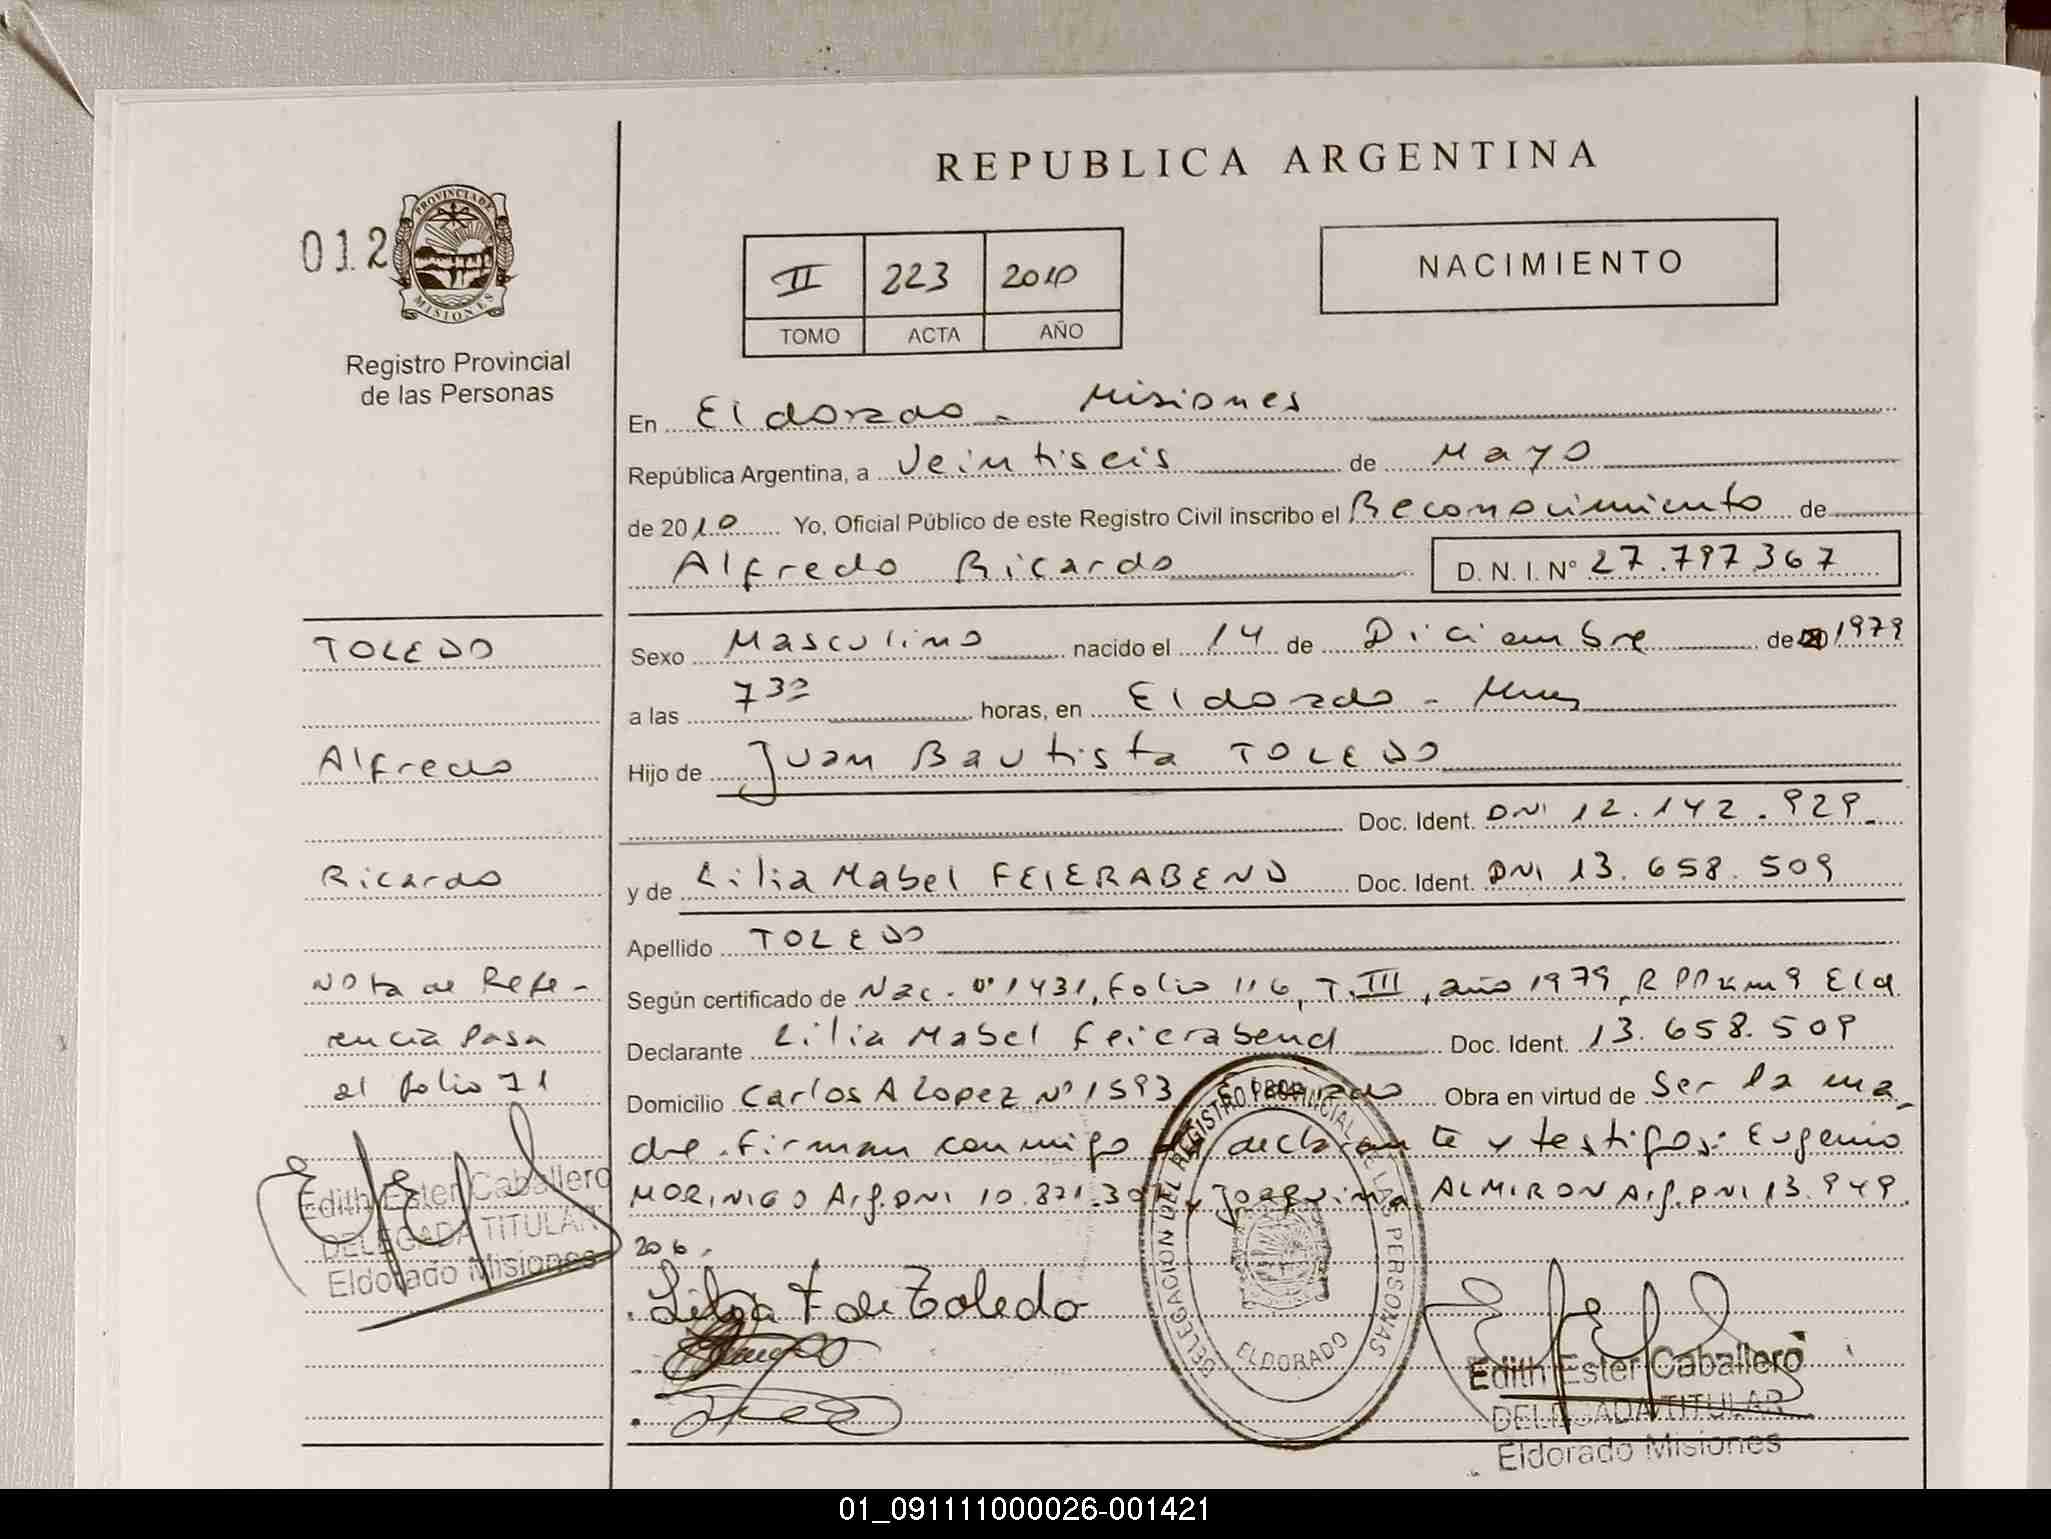 REPUBLICA ARGENTINA
012
PROVINCIA DE
MISIONES
Registro Provincial
de las Personas
II 223 2010
TOMO ACTA AÑO
NACIMIENTO
En Eldorado - Misiones
República Argentina, a Veintiseis de Mayo
de 2010 Yo, Oficial Público de este Registro Civil inscribo el Reconocimiento de
Alfredo Ricardo D. N. I. N° 27.797.367
TOLEDO
Alfredo
Ricardo
Nota de Refe-
rencia Pasa
al folio 71
Edith Ester Caballero
DELEGADA TITULAR
Eldorado Misiones
Sexo Masculino nacido el 14 de Diciembre de 1979
a las 7 30 horas, en Eldorado - Mnes
Hijo de Juan Bautista TOLEDO
Doc. Ident. DNI 12.142.929.
y de Lilia Mabel FEIERABEND Doc. Ident. DNI 13.658.509
Apellido TOLEDO
Según certificado de Nac. N° 1431, Folio 116, T. III, año 1979, RPP Km 9 Eld
Declarante Lilia Mabel Feierabend Doc. Ident. 13.658.509
Domicilio Carlos A Lopez N° 1593 Eldorado Obra en virtud de Ser la ma-
dre. Firman conmigo la declarante y testigos: Eugenio
MORINIGO Arg. DNI 10.871.30 y Joaquina ALMIRON Arg. DNI 13.949.
206.
Lilia F de Toledo
DELEGACION DEL REGISTRO PROVINCIAL DE LAS PERSONAS
ELDORADO
Edith Ester Caballero
DELEGADA TITULAR
Eldorado Misiones
01_091111000026-001421